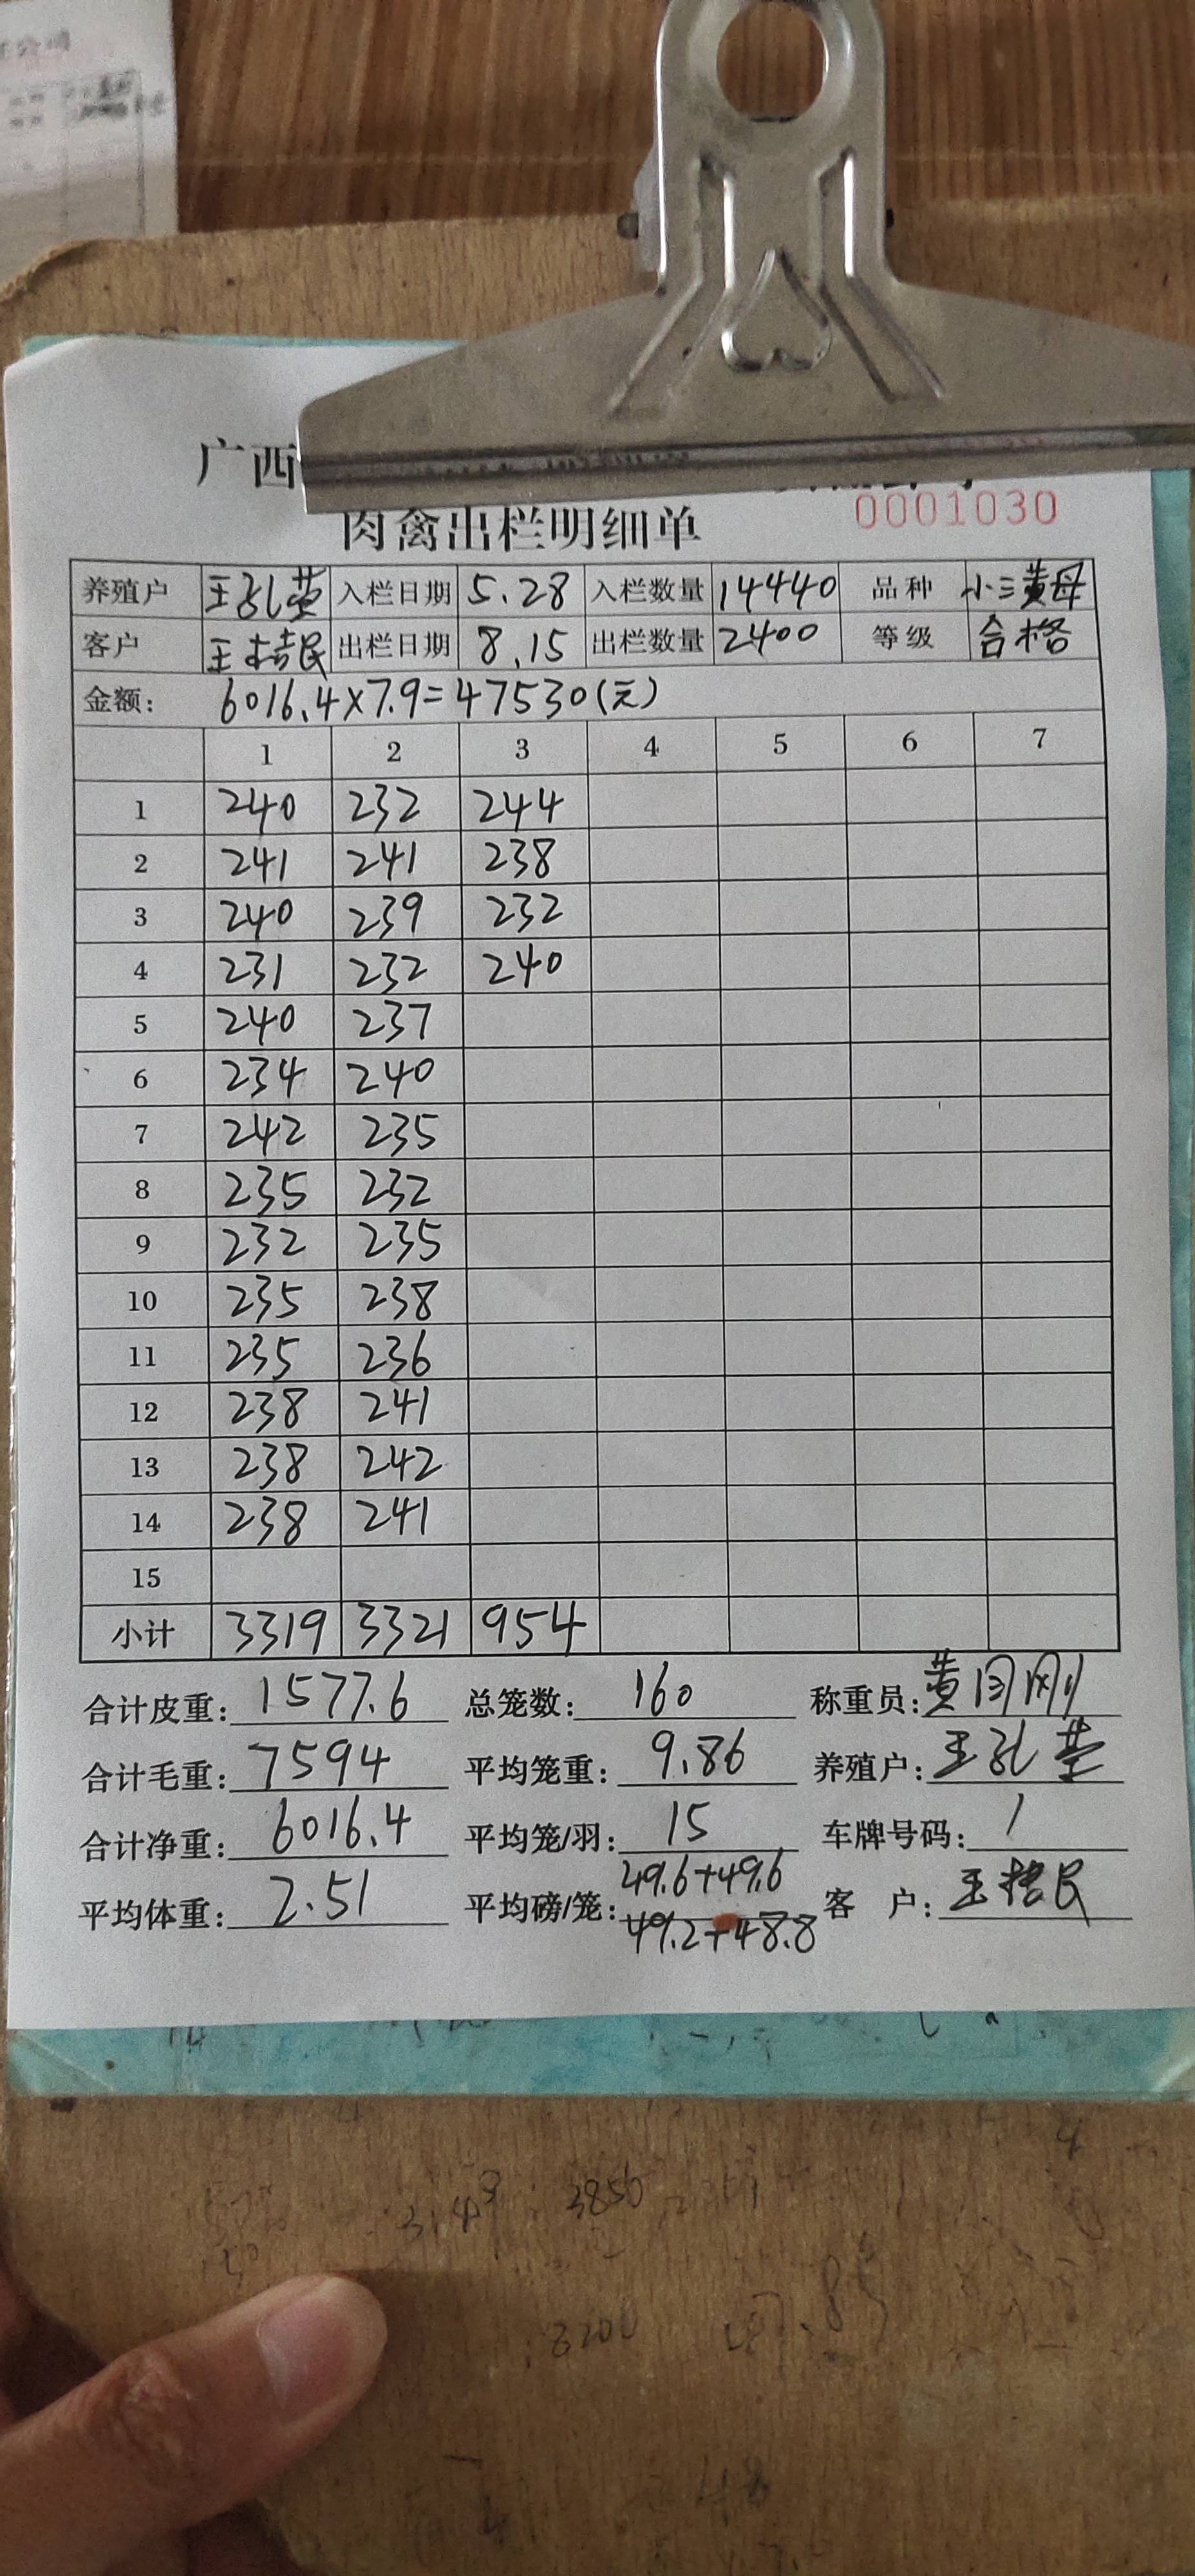 广西
0001030
肉禽出栏明细单
养殖户 王孔萤 入栏日期 5.28 入栏数量 14440 品种 小三黄母
客户 出栏日期 8.15 出栏数量 2400 等级 合格
金额: 6016.4×7.9=47530(元)
1 2 3 4 5 6 7
1 240 232 244
2 241 241 238
3 240 239 232
4 231 232 240
5 240 237
6 234 240
7 242 235
8 235 232
9 232 235
10 235 238
11 235 236
12 238 241
13 238 242
14 238 241
15
小计 3319 3321 954
合计皮重: 1577.6 总笼数: 160 称重员:
合计毛重: 7594 平均笼重: 9.86 养殖户: 王孔萤
合计净重: 6016.4 平均笼/羽: 15 车牌号码: /
平均体重: 2.51 平均磅/笼: 49.6+49.6 客 户:
+49.2+48.8
3850
3200